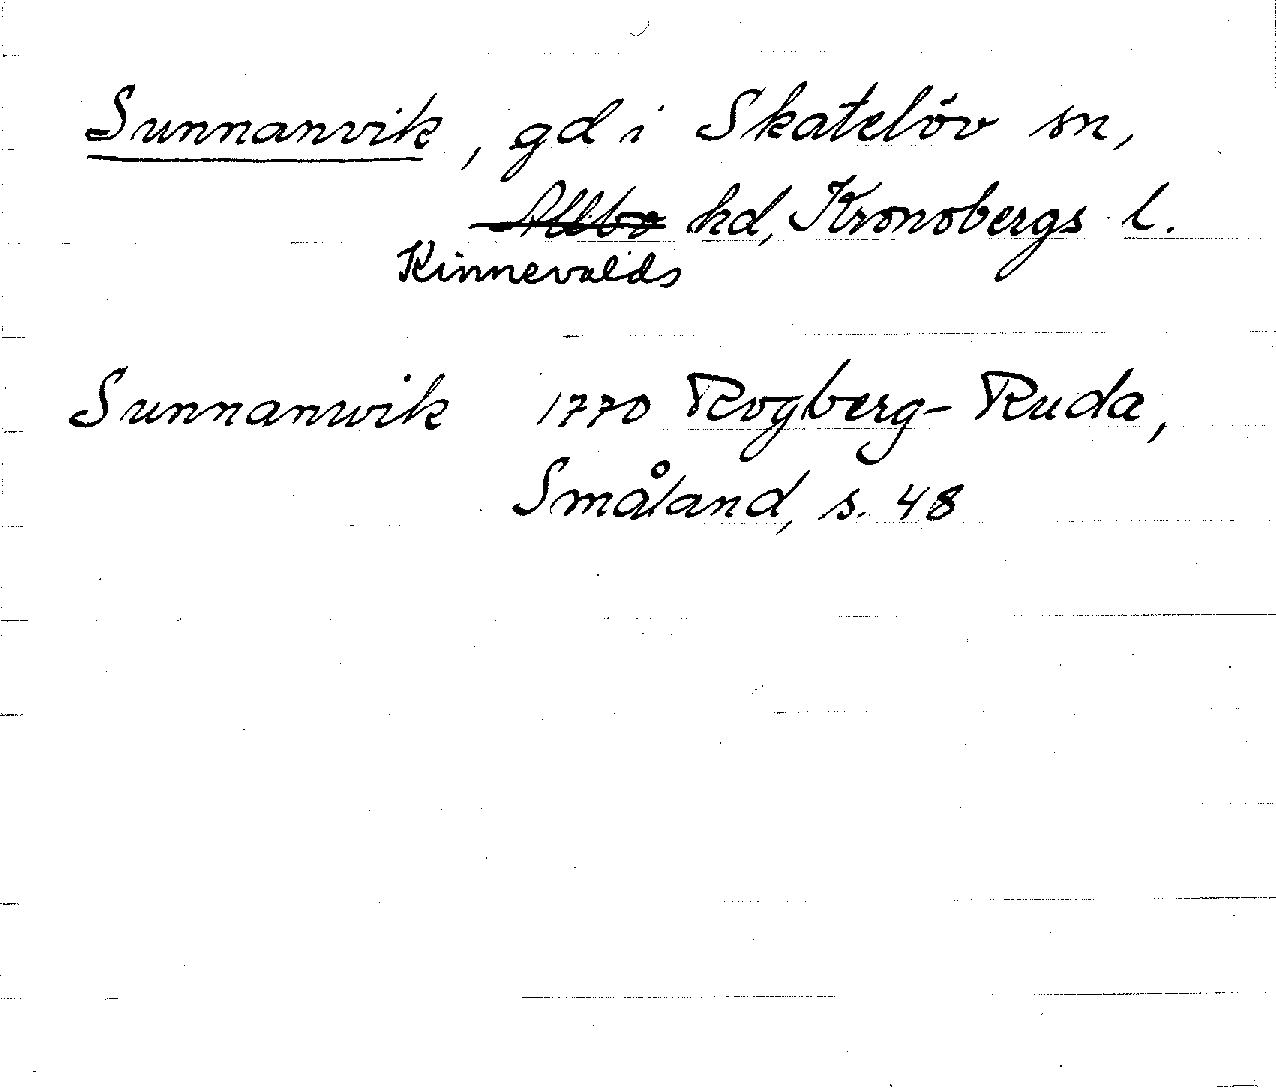 Sunnanvik, gd i Skatelöv sn,
Allbo hd, Kronobergs l.
Kinnevalds
Sunnanwik 1770 Rogberg-Ruda,
Småland, s. 48